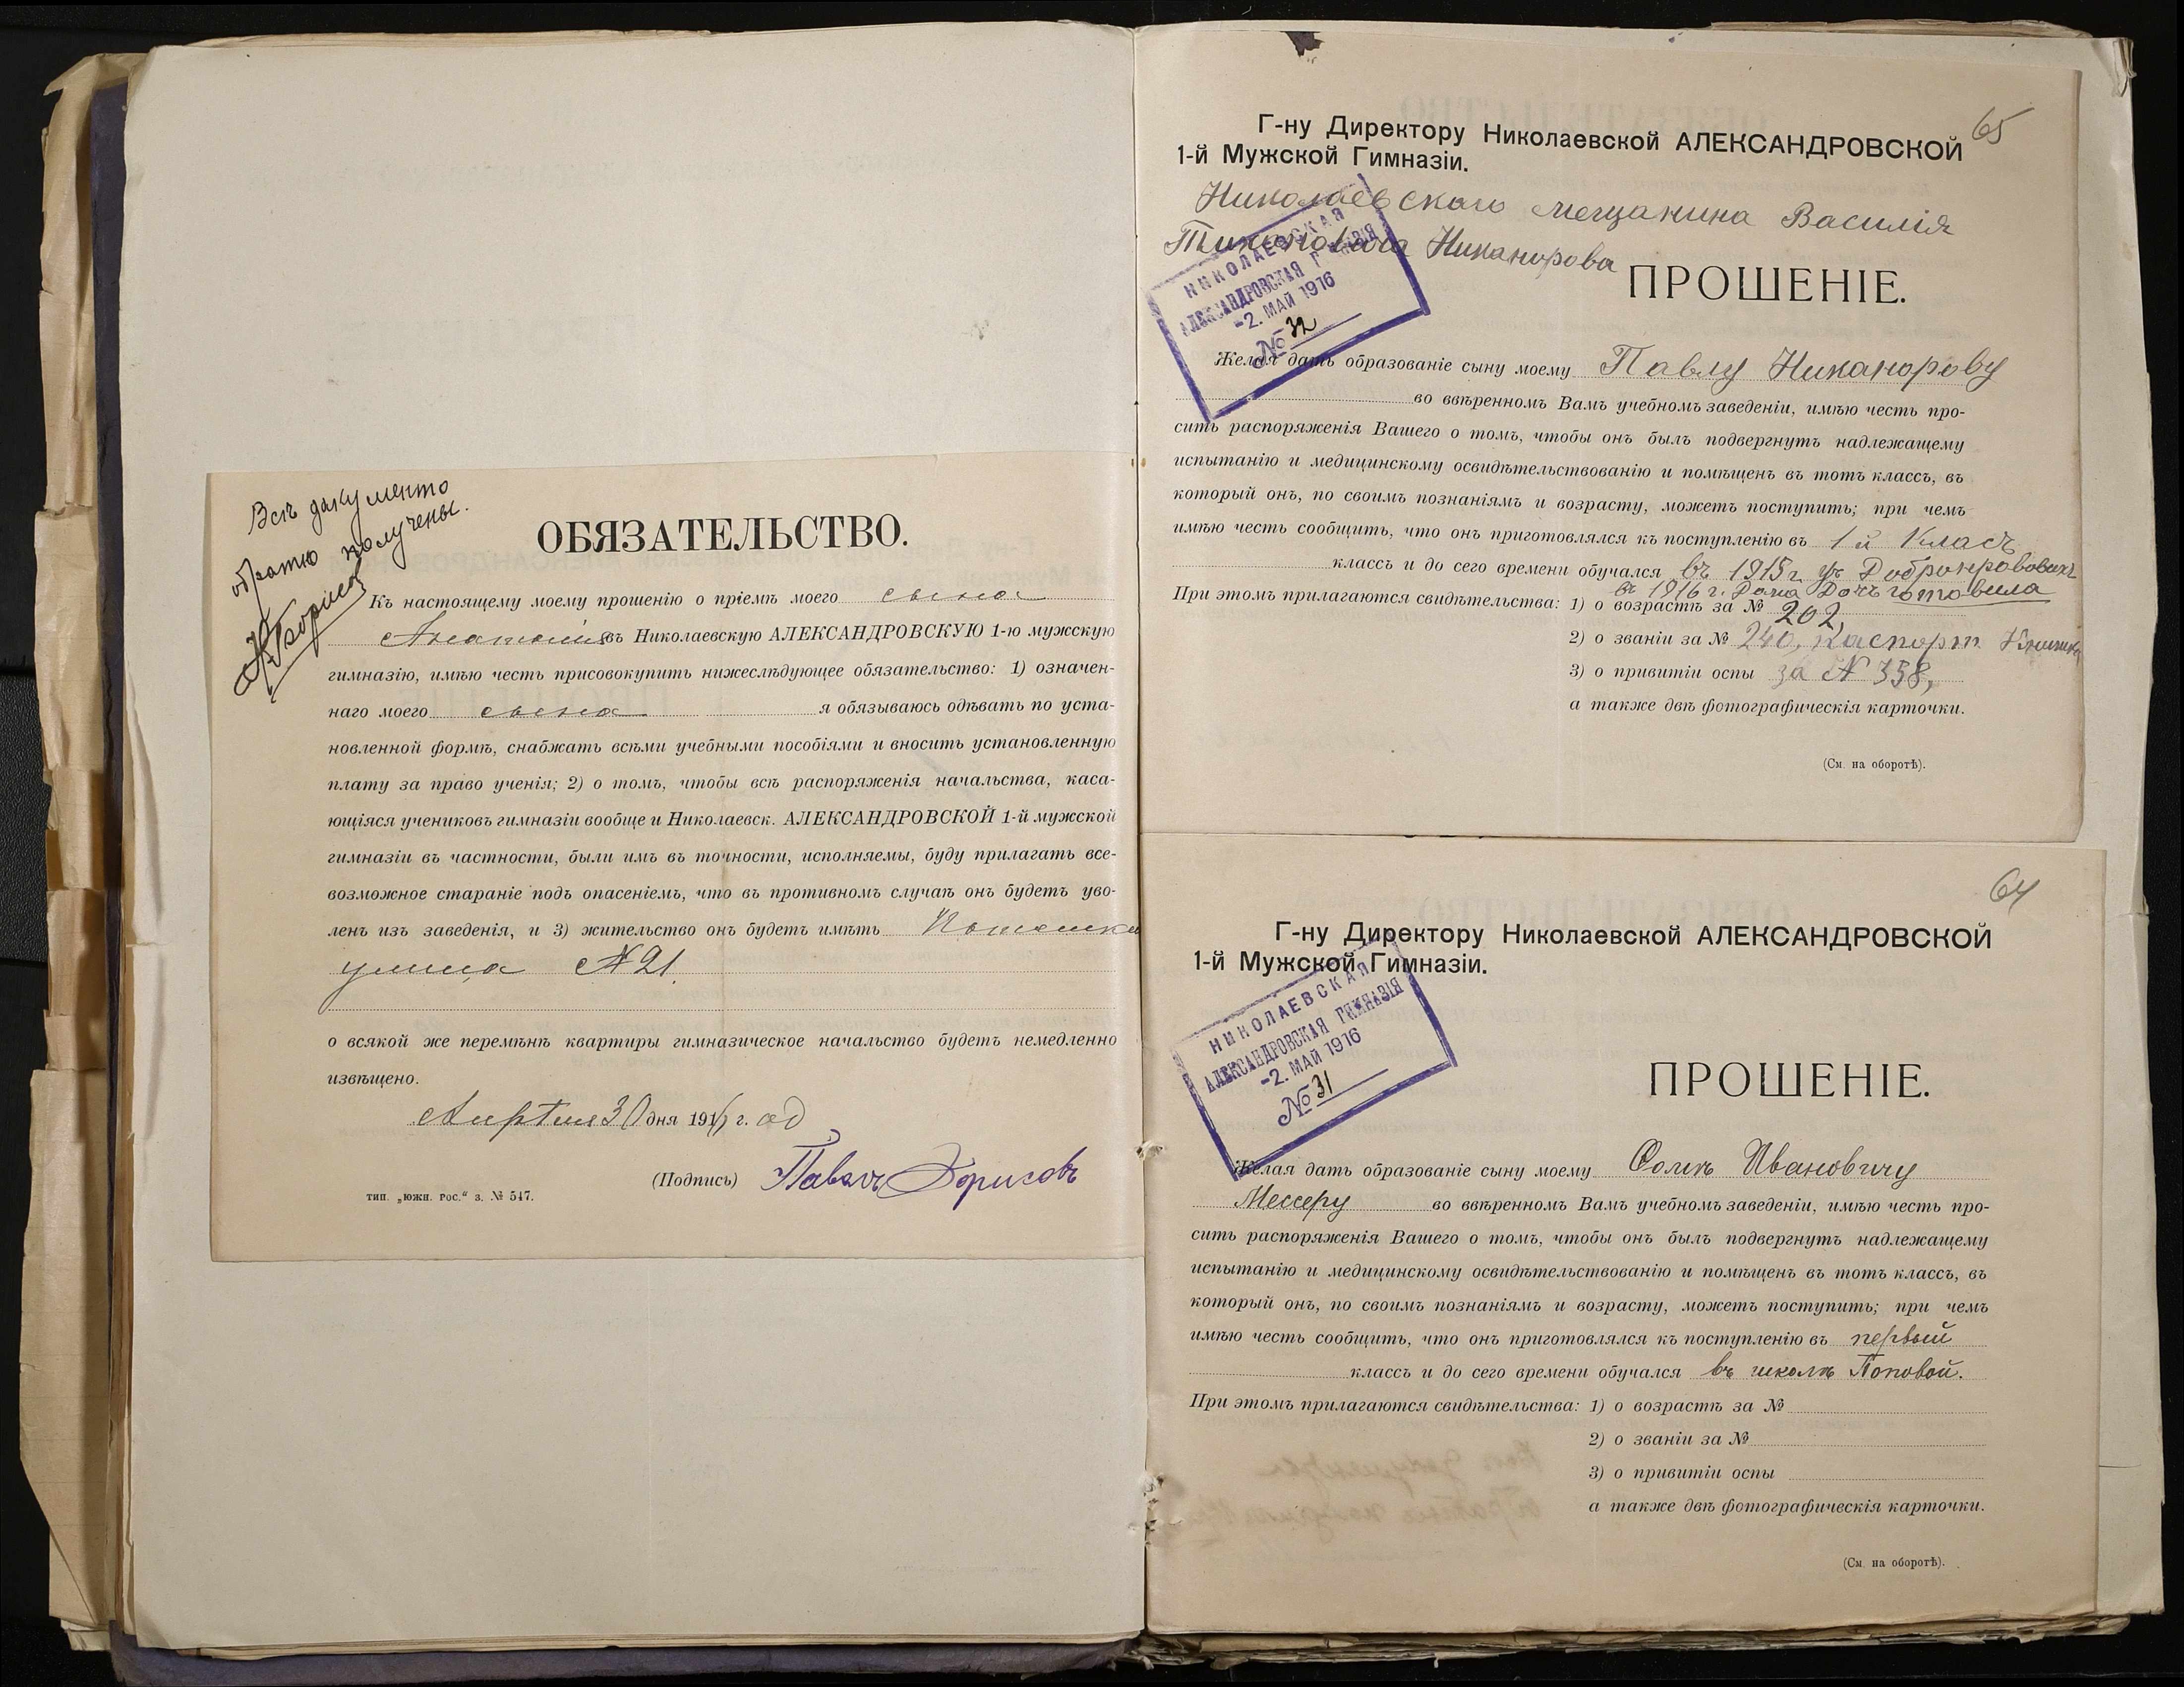 Всѣ документо
обратно получены.
Борисов
ОБЯЗАТЕЛЬСТВО.
Къ настоящему моему прошенію о пріемѣ моего сына
Анатолія въ Николаевскую АЛЕКСАНДРОВСКУЮ 1-ю мужскую
гимназію, имѣю честь присовокупить нижеслѣдующее обязательство: 1) означен-
наго моего сына я обязываюсь одѣвать по уста-
новленной формѣ, снабжать всѣми учебными пособіями и вносить установленную
плату за право ученія; 2) о томъ, чтобы всѣ распоряженія начальства, каса-
ющіяся учениковъ гимназіи вообще и Николаевск. АЛЕКСАНДРОВСКОЙ 1-й мужской
гимназіи въ частности, были имъ въ точности, исполняемы, буду прилагать все-
возможное стараніе подъ опасеніемъ, что въ противномъ случаѣ онъ будетъ уво-
ленъ изъ заведенія, и 3) жительство онъ будетъ имѣть
улица №21.
о всякой же перемѣнѣ квартиры гимназическое начальство будетъ немедленно
извѣщено.
Апрѣля 30 дня 1916 г. од
(Подпись) Павелъ Борисовъ
тип. „южн. рос.“ з. № 547.
65
Г-ну Директору Николаевской АЛЕКСАНДРОВСКОЙ
1-й Мужской Гимназіи.
Николаевского мещанина Василія
Никанорова
ПРОШЕНІЕ.
НИКОЛАЕВСКАЯ
АЛЕКСАНДРОВСКАЯ ГИМНАЗІЯ
-2. МАЙ 1916
№ 32
Желая дать образованіе сыну моему Павлу Никанорову
во ввѣренномъ Вамъ учебномъ заведеніи, имѣю честь про-
сить распоряженія Вашего о томъ, чтобы онъ былъ подвергнутъ надлежащему
испытанію и медицинскому освидѣтельствованію и помѣщенъ въ тотъ классъ, въ
который онъ, по своимъ познаніямъ и возрасту, можетъ поступить; при чемъ
имѣю честь сообщить, что онъ приготовлялся къ поступленію въ 1й Класъ
классъ и до сего времени обучался въ 1915 г. у
въ 1916 г. готовила
При этомъ прилагаются свидѣтельства: 1) о возрастѣ за № 202,
2) о званіи за № 240, паспорт. Книшка
3) о привитіи оспы за № 358,
а также двѣ фотографическія карточки.
(См. на оборотѣ).
64
Г-ну Директору Николаевской АЛЕКСАНДРОВСКОЙ
1-й Мужской Гимназіи.
НИКОЛАЕВСКАЯ
АЛЕКСАНДРОВСКАЯ ГИМНАЗІЯ
-2. МАЙ 1916
№ 31
ПРОШЕНІЕ.
Желая дать образованіе сыну моему Ивановичу
Мессеру во ввѣренномъ Вамъ учебномъ заведеніи, имѣю честь про-
сить распоряженія Вашего о томъ, чтобы онъ былъ подвергнутъ надлежащему
испытанію и медицинскому освидѣтельствованію и помѣщенъ въ тотъ классъ, въ
который онъ, по своимъ познаніямъ и возрасту, можетъ поступить; при чемъ
имѣю честь сообщить, что онъ приготовлялся къ поступленію въ первый
классъ и до сего времени обучался въ школѣ Поповой.
При этомъ прилагаются свидѣтельства: 1) о возрастѣ за №
2) о званіи за №
3) о привитіи оспы
а также двѣ фотографическія карточки.
(См. на оборотѣ).